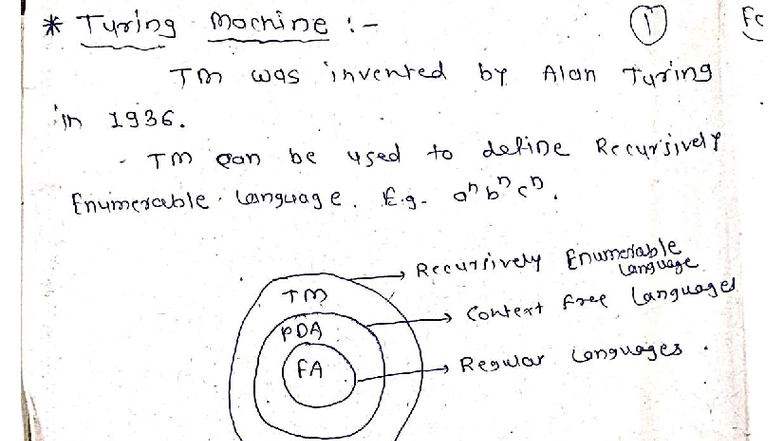 * Turing Machine :-
1
Fo
TM was invented by Alan Turing
in 1936.
- TM can be used to define Recursively
Enumerable Language. E.g. aⁿ bⁿ cⁿ.
Recursively Enumerable
Language
TM
Context Free Languages
PDA
FA
Regular Languages.